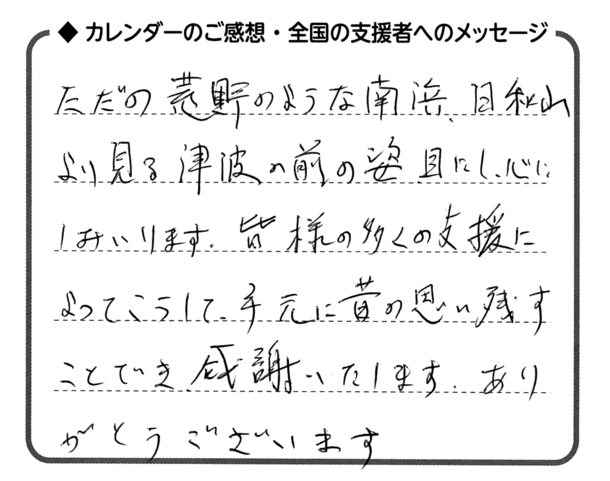 ◆ カレンダーのご感想・全国の支援者へのメッセージ
ただの荒野のような南浜、日和山
より見る津波の前の姿目にし、心に
しみいります。皆様の多くの支援に
よってこうして、手元に昔の思い残す
ことでき、感謝いたします。あり
がとうございます